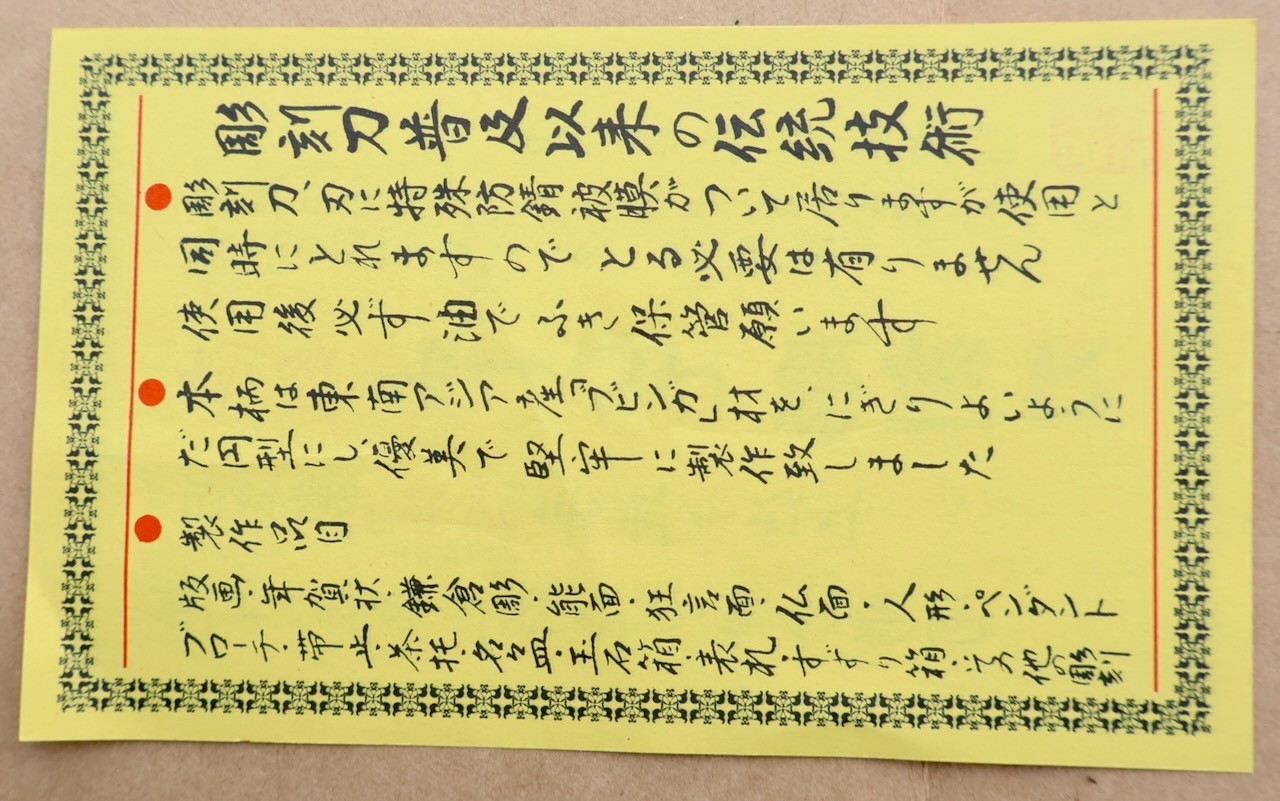 彫刻刀普及以来の伝統技術
彫刻刀、刃に特殊防錆被膜がついて居りますが使用と
同時にとれますので とる必要は有りません
使用後必ず油でふき保管願います
本柄は東南アジア産「ブビンガ」材を、にぎりよいように
だ円型にし、優美で堅牢に製作致しました
製作品目
版画・年賀状・鎌倉彫・能面・狂言面・仏面・人形・ペンダント
ブローチ・帯止・茶托・名皿・玉石箱・表札・すずり箱・その他の彫刻